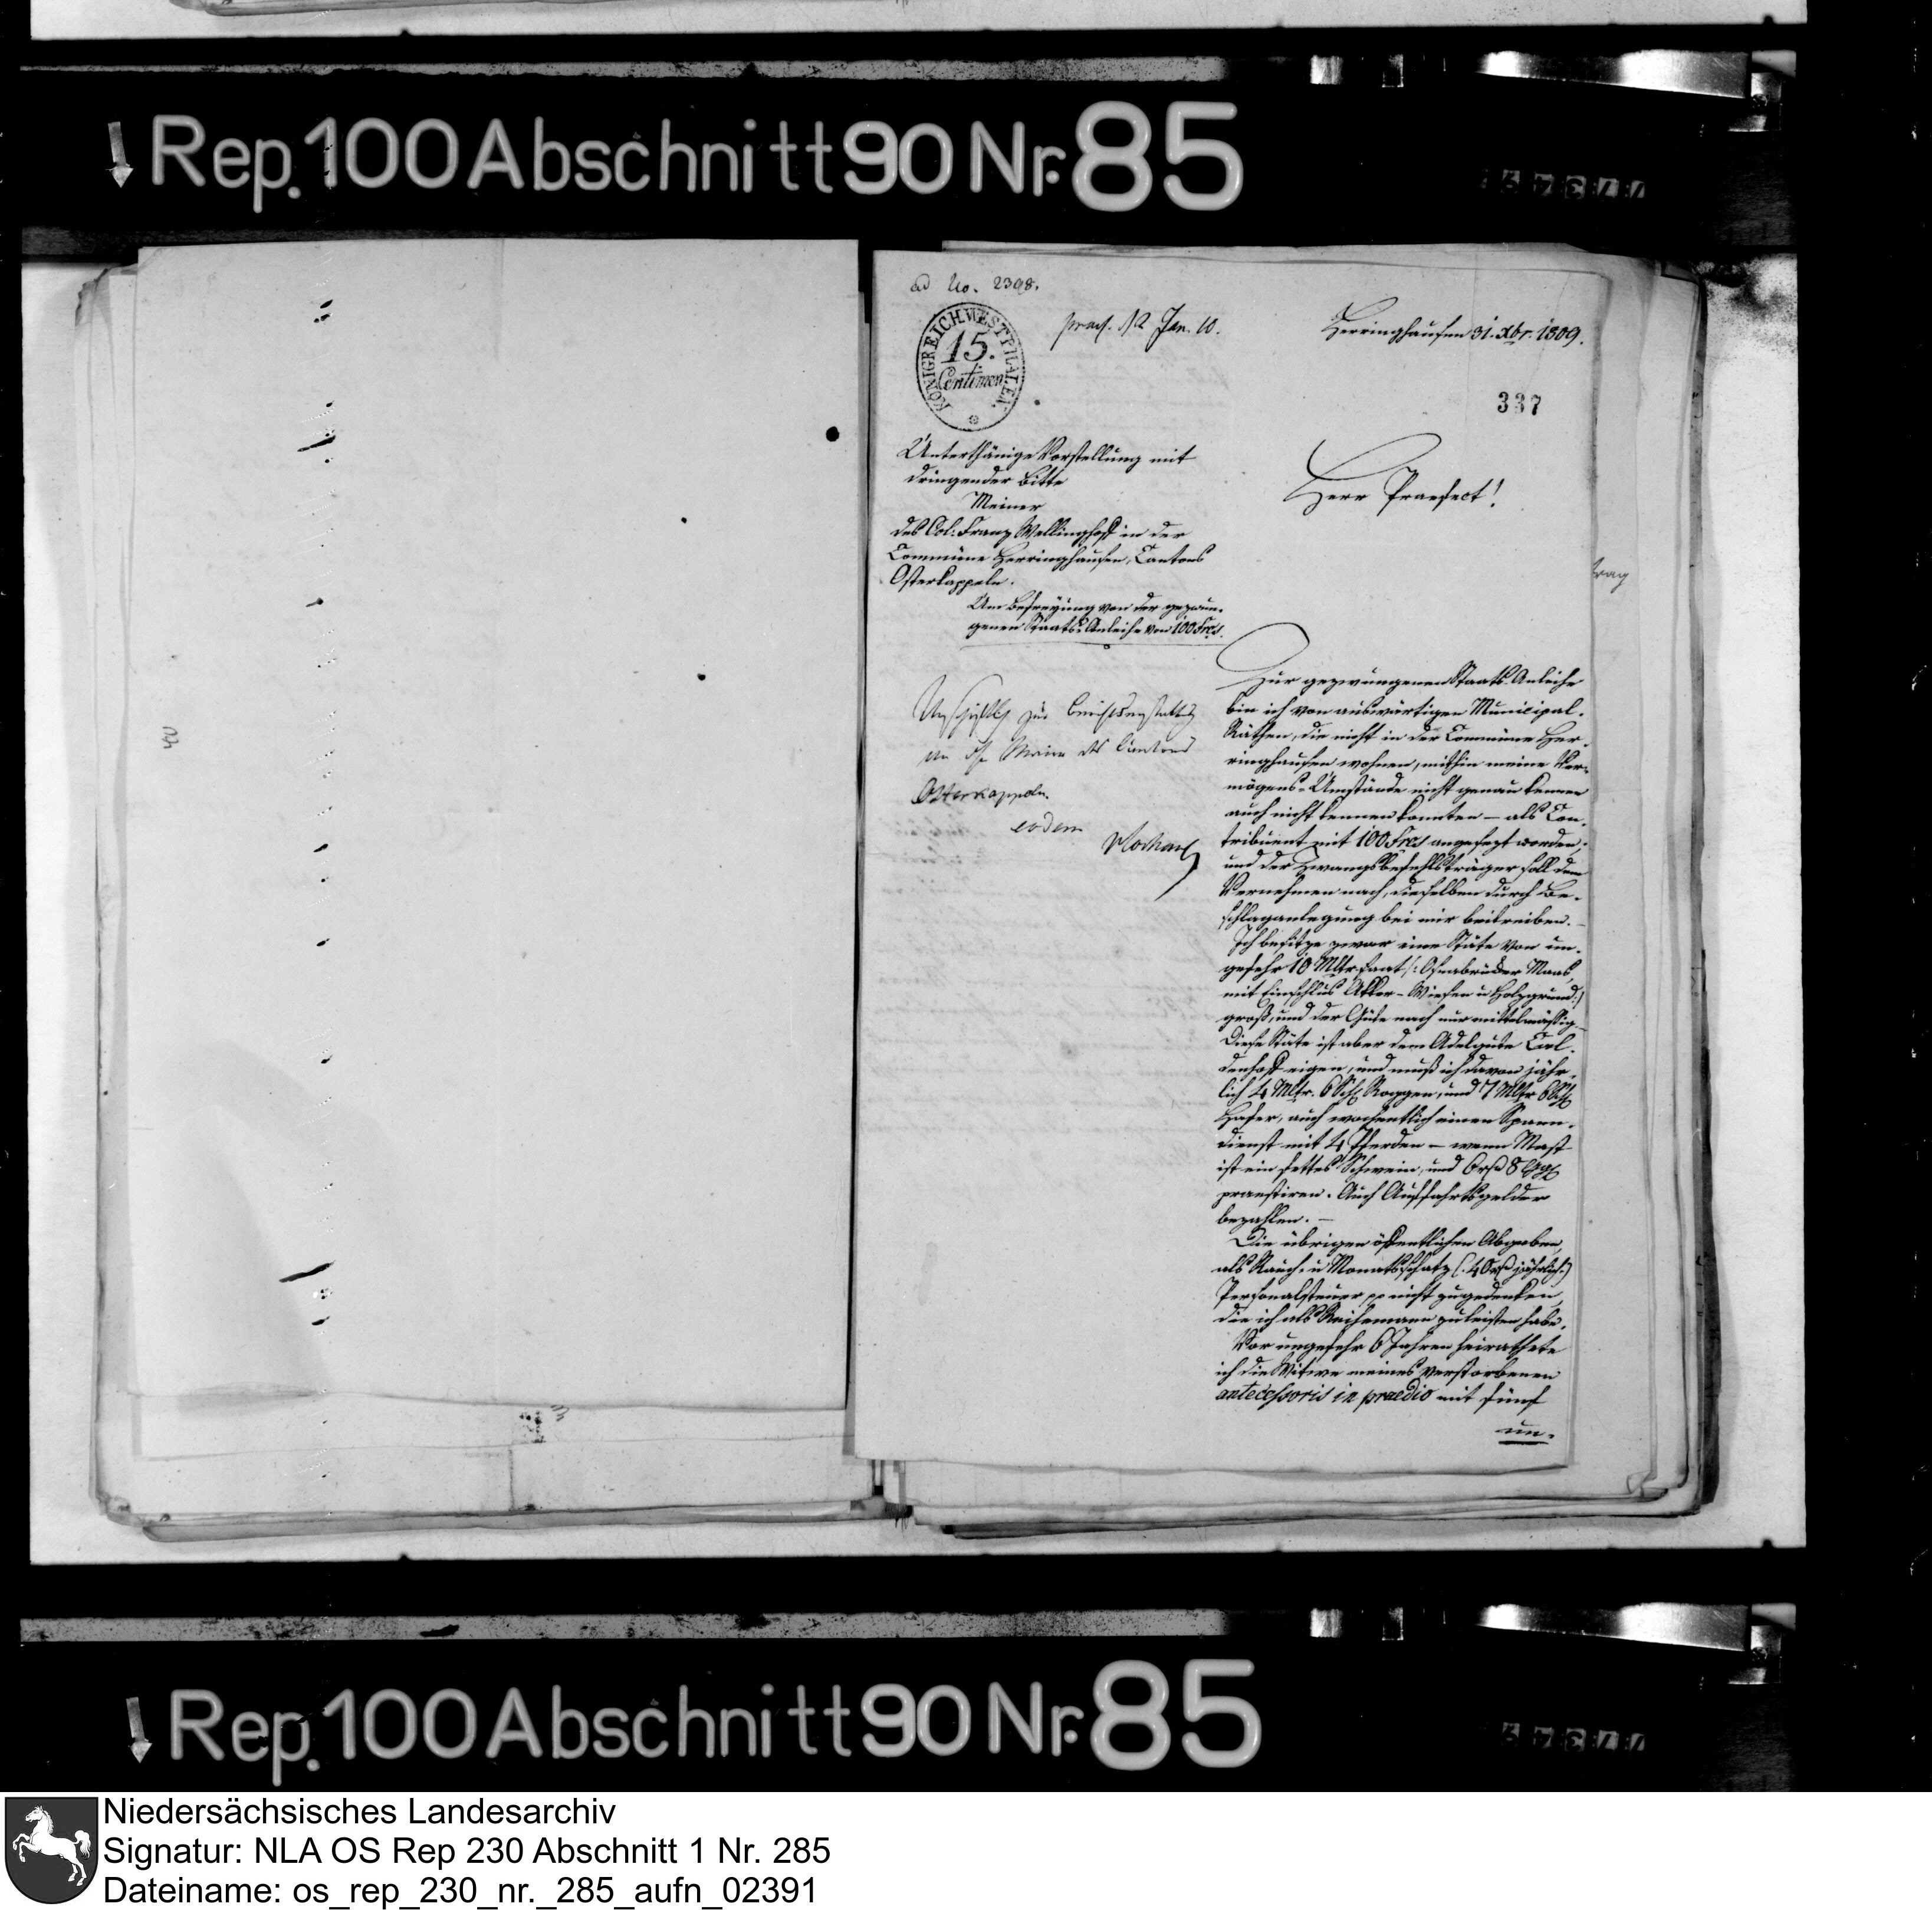 Rep. 100 Abschnitt 90 Nr. 85
ad No. 2398.
KÖNIGREICH WESTPHALEN.
15.
Centimen
praes. 12 Jan. 10.
Herringhausen 31. Xbr. 1809.
337
Herr Praefect!
Unterthänige Vorstellung mit
dringender Bitte
Meiner
des Col: Franz Wellinghoff in der
Commüne Herringhausen, Cantons
Osterkappeln.
Um Befreyung von der gezwun-
genen Staats-Anleihe von 100 Frcs.
zur
des Cantons
Osterkappeln.
eodem
Zur gezwungenen Staats-Anleihe
bin ich von auswärtigen Municipal-
Räthen, die nicht in der Commüne Her-
ringhausen wohnen, mithin meine Ver-
mögens-Umstände nicht genau kennen
auch nicht kennen konnten – als Con-
tribuent mit 100 Frcs angesezt worden;
und der Zwangsbefehlsträger soll dem
Vernehmen nach, dieselben durch Be-
schlaganlegung bei mir beitreiben. –
Ich besitze zwar eine Stäte von un-
gefehr 10 Mltrsaat /: Osnabrücker Maas
mit Einschlus Akker- Wiesen u Holzgrund :/
groß, und der Güte nach nur mittelmäßig –
Diese Stäte ist aber dem Adelgute
eigen, und muß ich davon jähr-
lich 4 Mltr. 6 Schfl Roggen, und 7 Mltr 6 Schfl
Hafer, auch wochentlich einen Spann-
dienst mit 4 Pferden – wenn Mast
ist ein fettes Schwein, und 8
praestiren. Auch Auffahrtsgelder
bezahlen. –
Die übrigen öffentlichen Abgaben,
als Rauch- u Monatsschatz jährlich :)
Personalsteuer pp nicht zugedenken,
die ich als Reihemann zuleisten habe.
Vor ungefehr 6 Jahren heirathete
ich die Witwe meines verstorbenen
antecessoris in praedio mit fünf
un-
trag
Rep. 100 Abschnitt 90 Nr. 85
Niedersächsisches Landesarchiv
Signatur: NLA OS Rep 230 Abschnitt 1 Nr. 285
Dateiname: os_rep_230_nr._285_aufn_02391